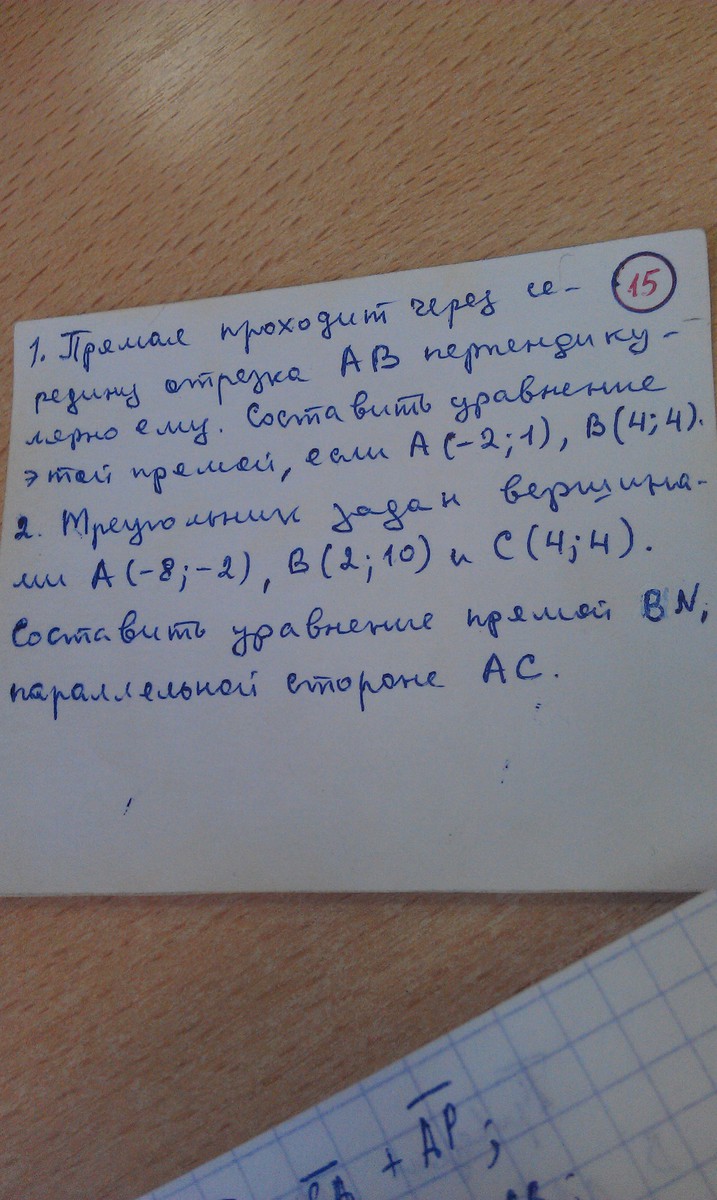 15
1. Прямая проходит через се-
редину отрезка AB перпендику-
лярно ему. Составить уравнение
этой прямой, если A(-2;1), B(4;4).
2. Треугольник задан вершина-
ми A(-8;-2), B(2;10) и C(4;4).
Составить уравнение прямой BN,
параллельной стороне AC.
+ AP;